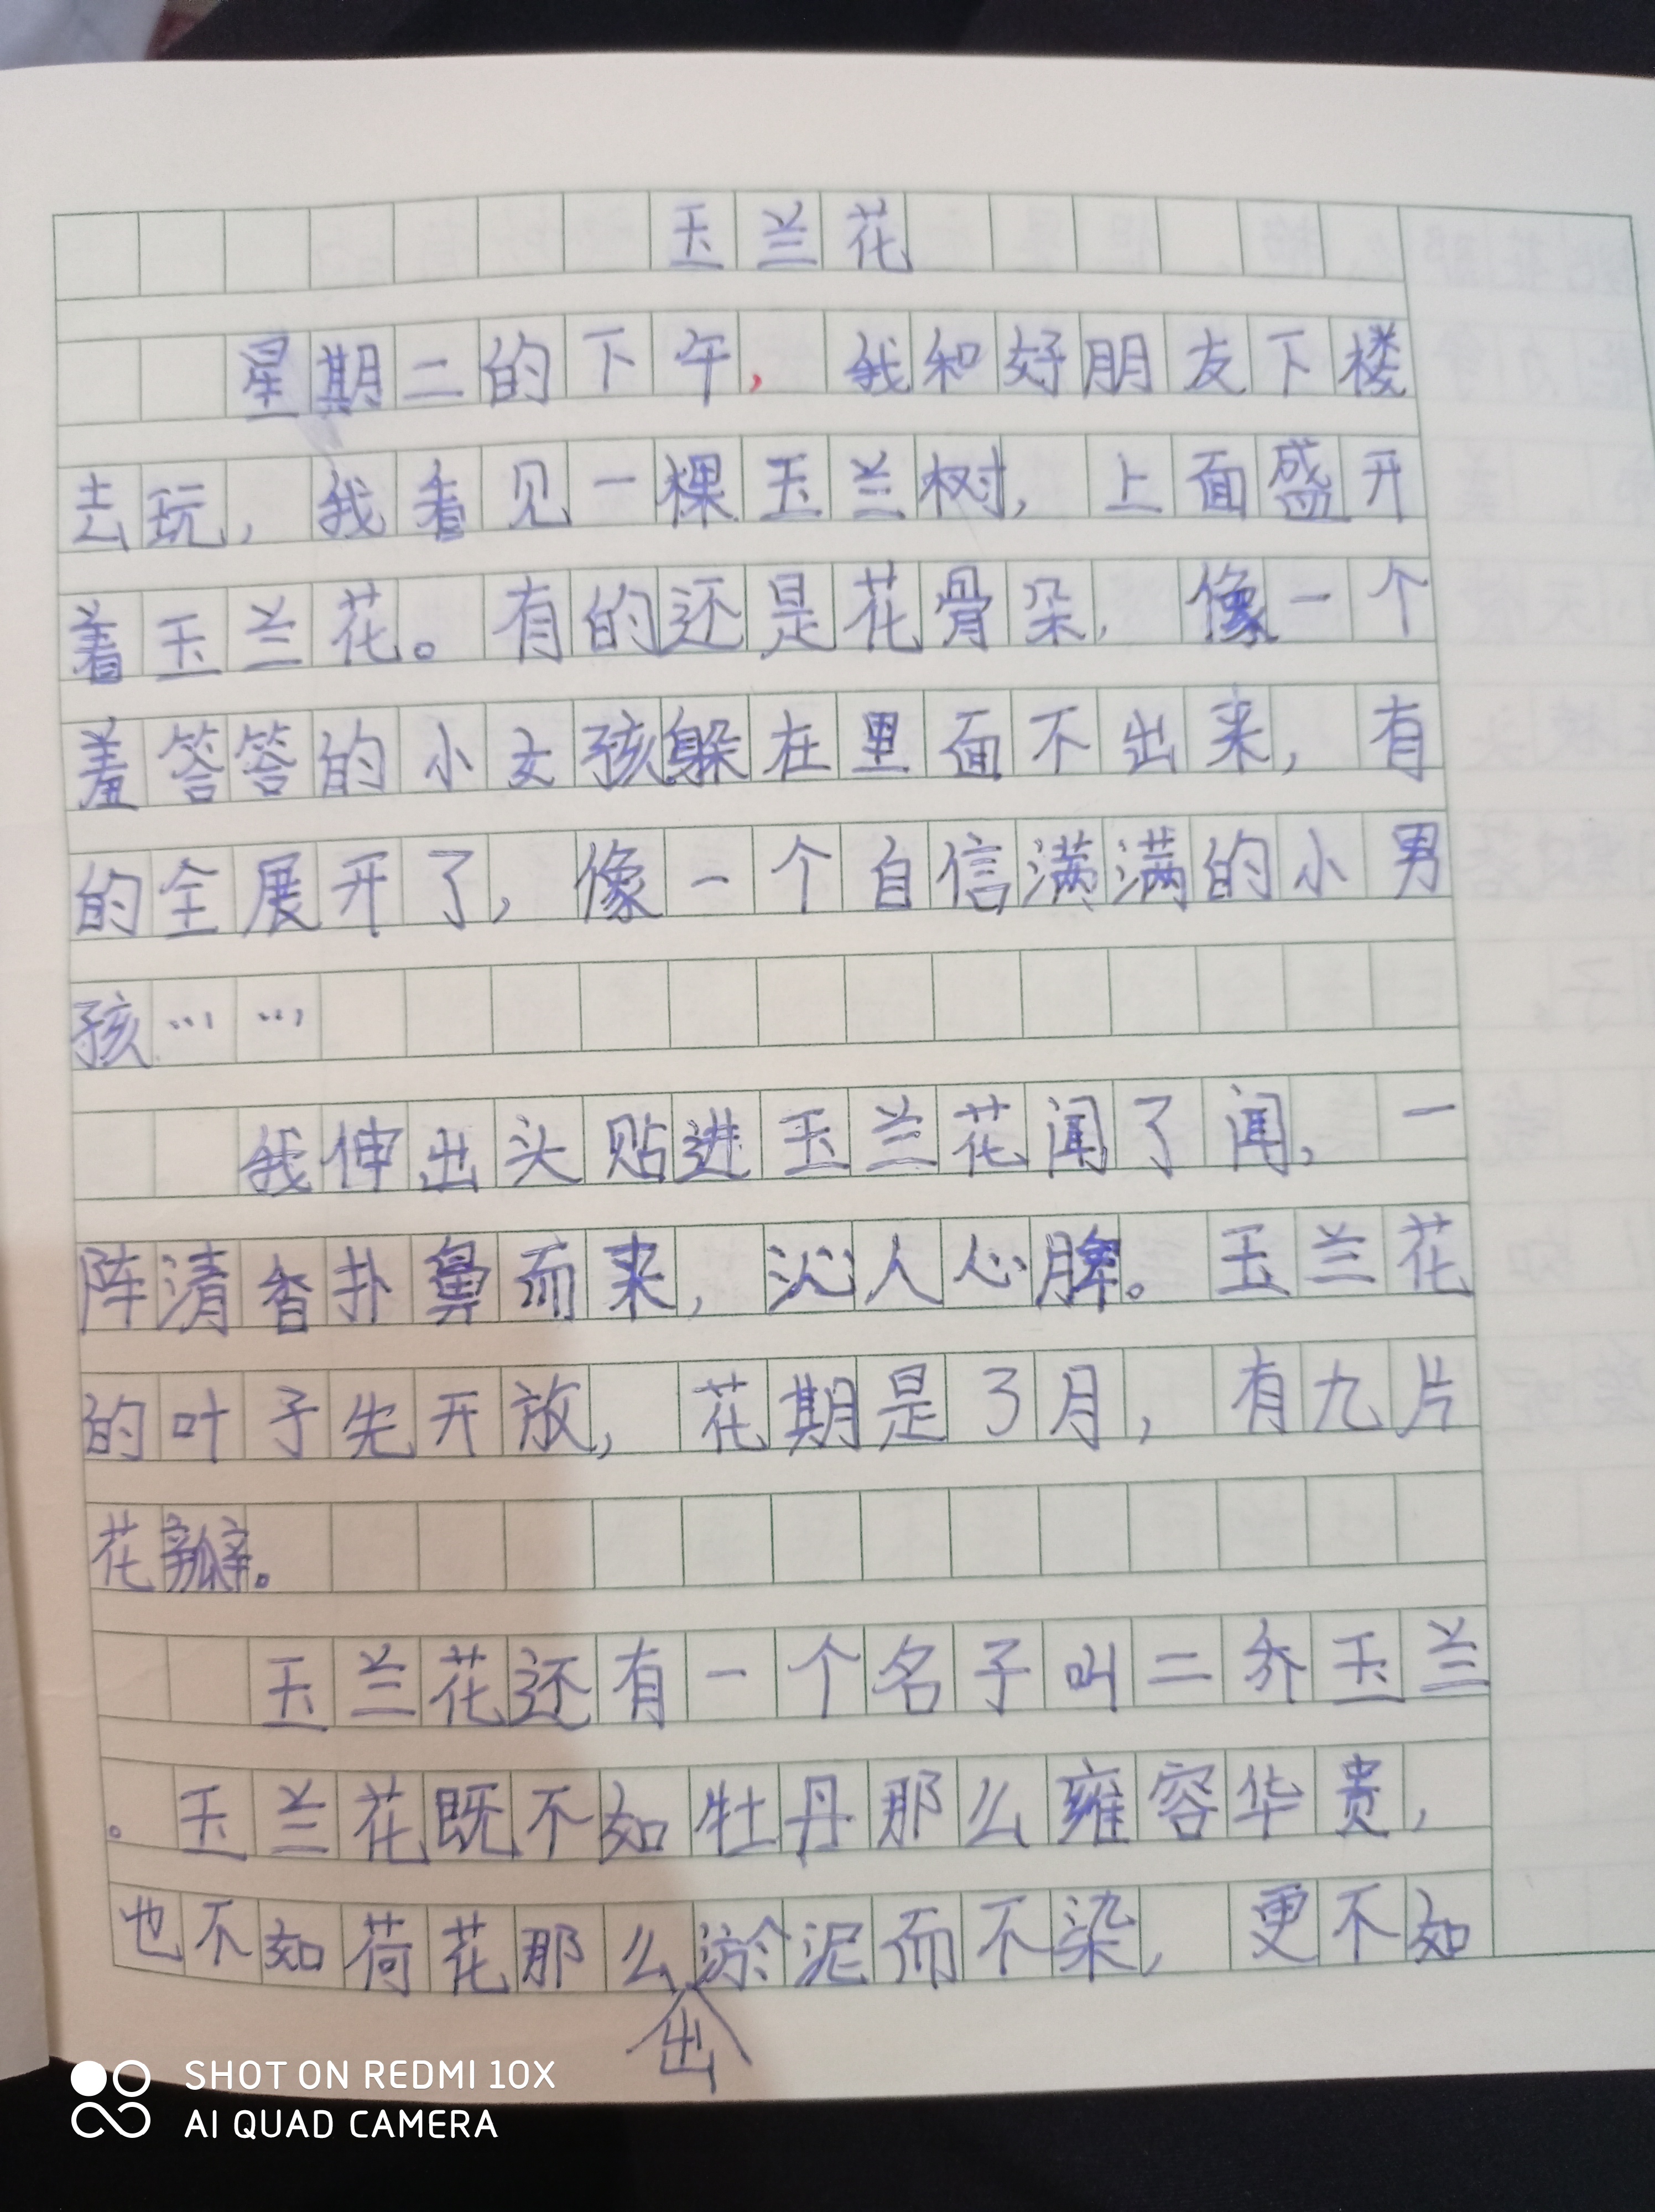 玉兰花
星期二的下午，我和好朋友下楼
去玩，我看见一棵玉兰树，上面盛开
着玉兰花。有的还是花骨朵，像一个
羞答答的小女孩躲在里面不出来，有
的全展开了，像一个自信满满的小男
孩……
我伸出头贴进玉兰花闻了闻，一
阵清香扑鼻而来，沁人心脾。玉兰花
的叶子先开放，花期是3月，有九片
花瓣。
玉兰花还有一个名子叫二乔玉兰
。玉兰花既不如牡丹那么雍容华贵，
也不如荷花那么出淤泥而不染，更不如
SHOT ON REDMI 10X
AI QUAD CAMERA